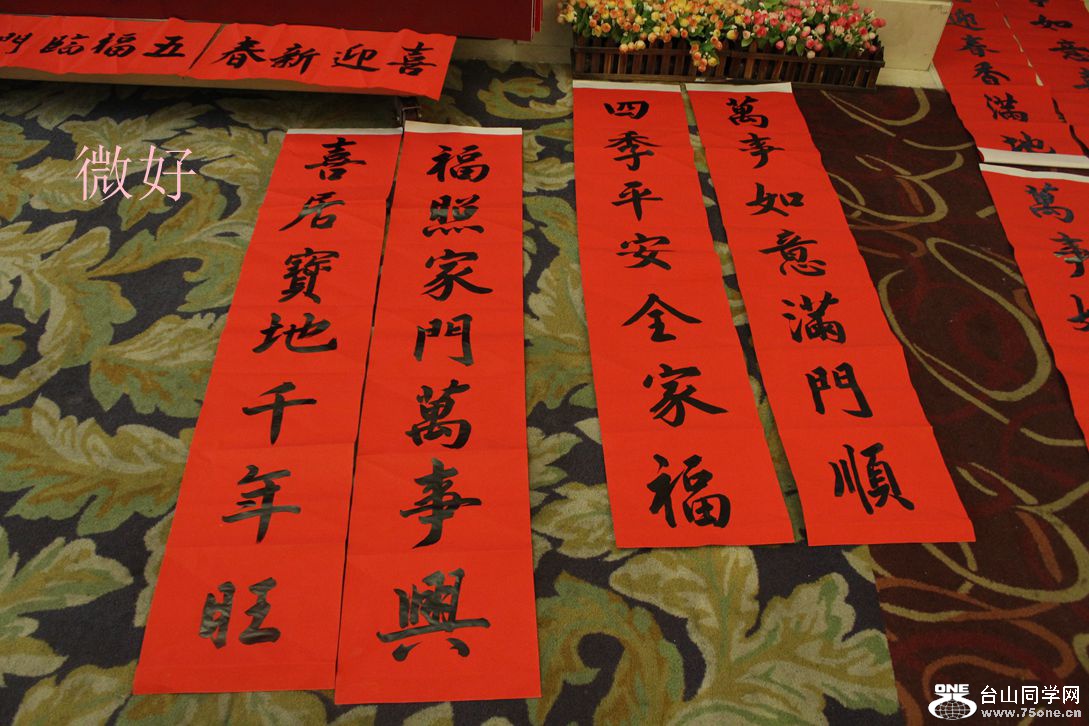 喜迎新春
五福臨門
微好
喜居寶地千年旺
福照家門萬事興
四季平安全家福
萬事如意滿門順
迎春香滿地
如意
萬事如
ONE 台山同学网
www.75one.cn